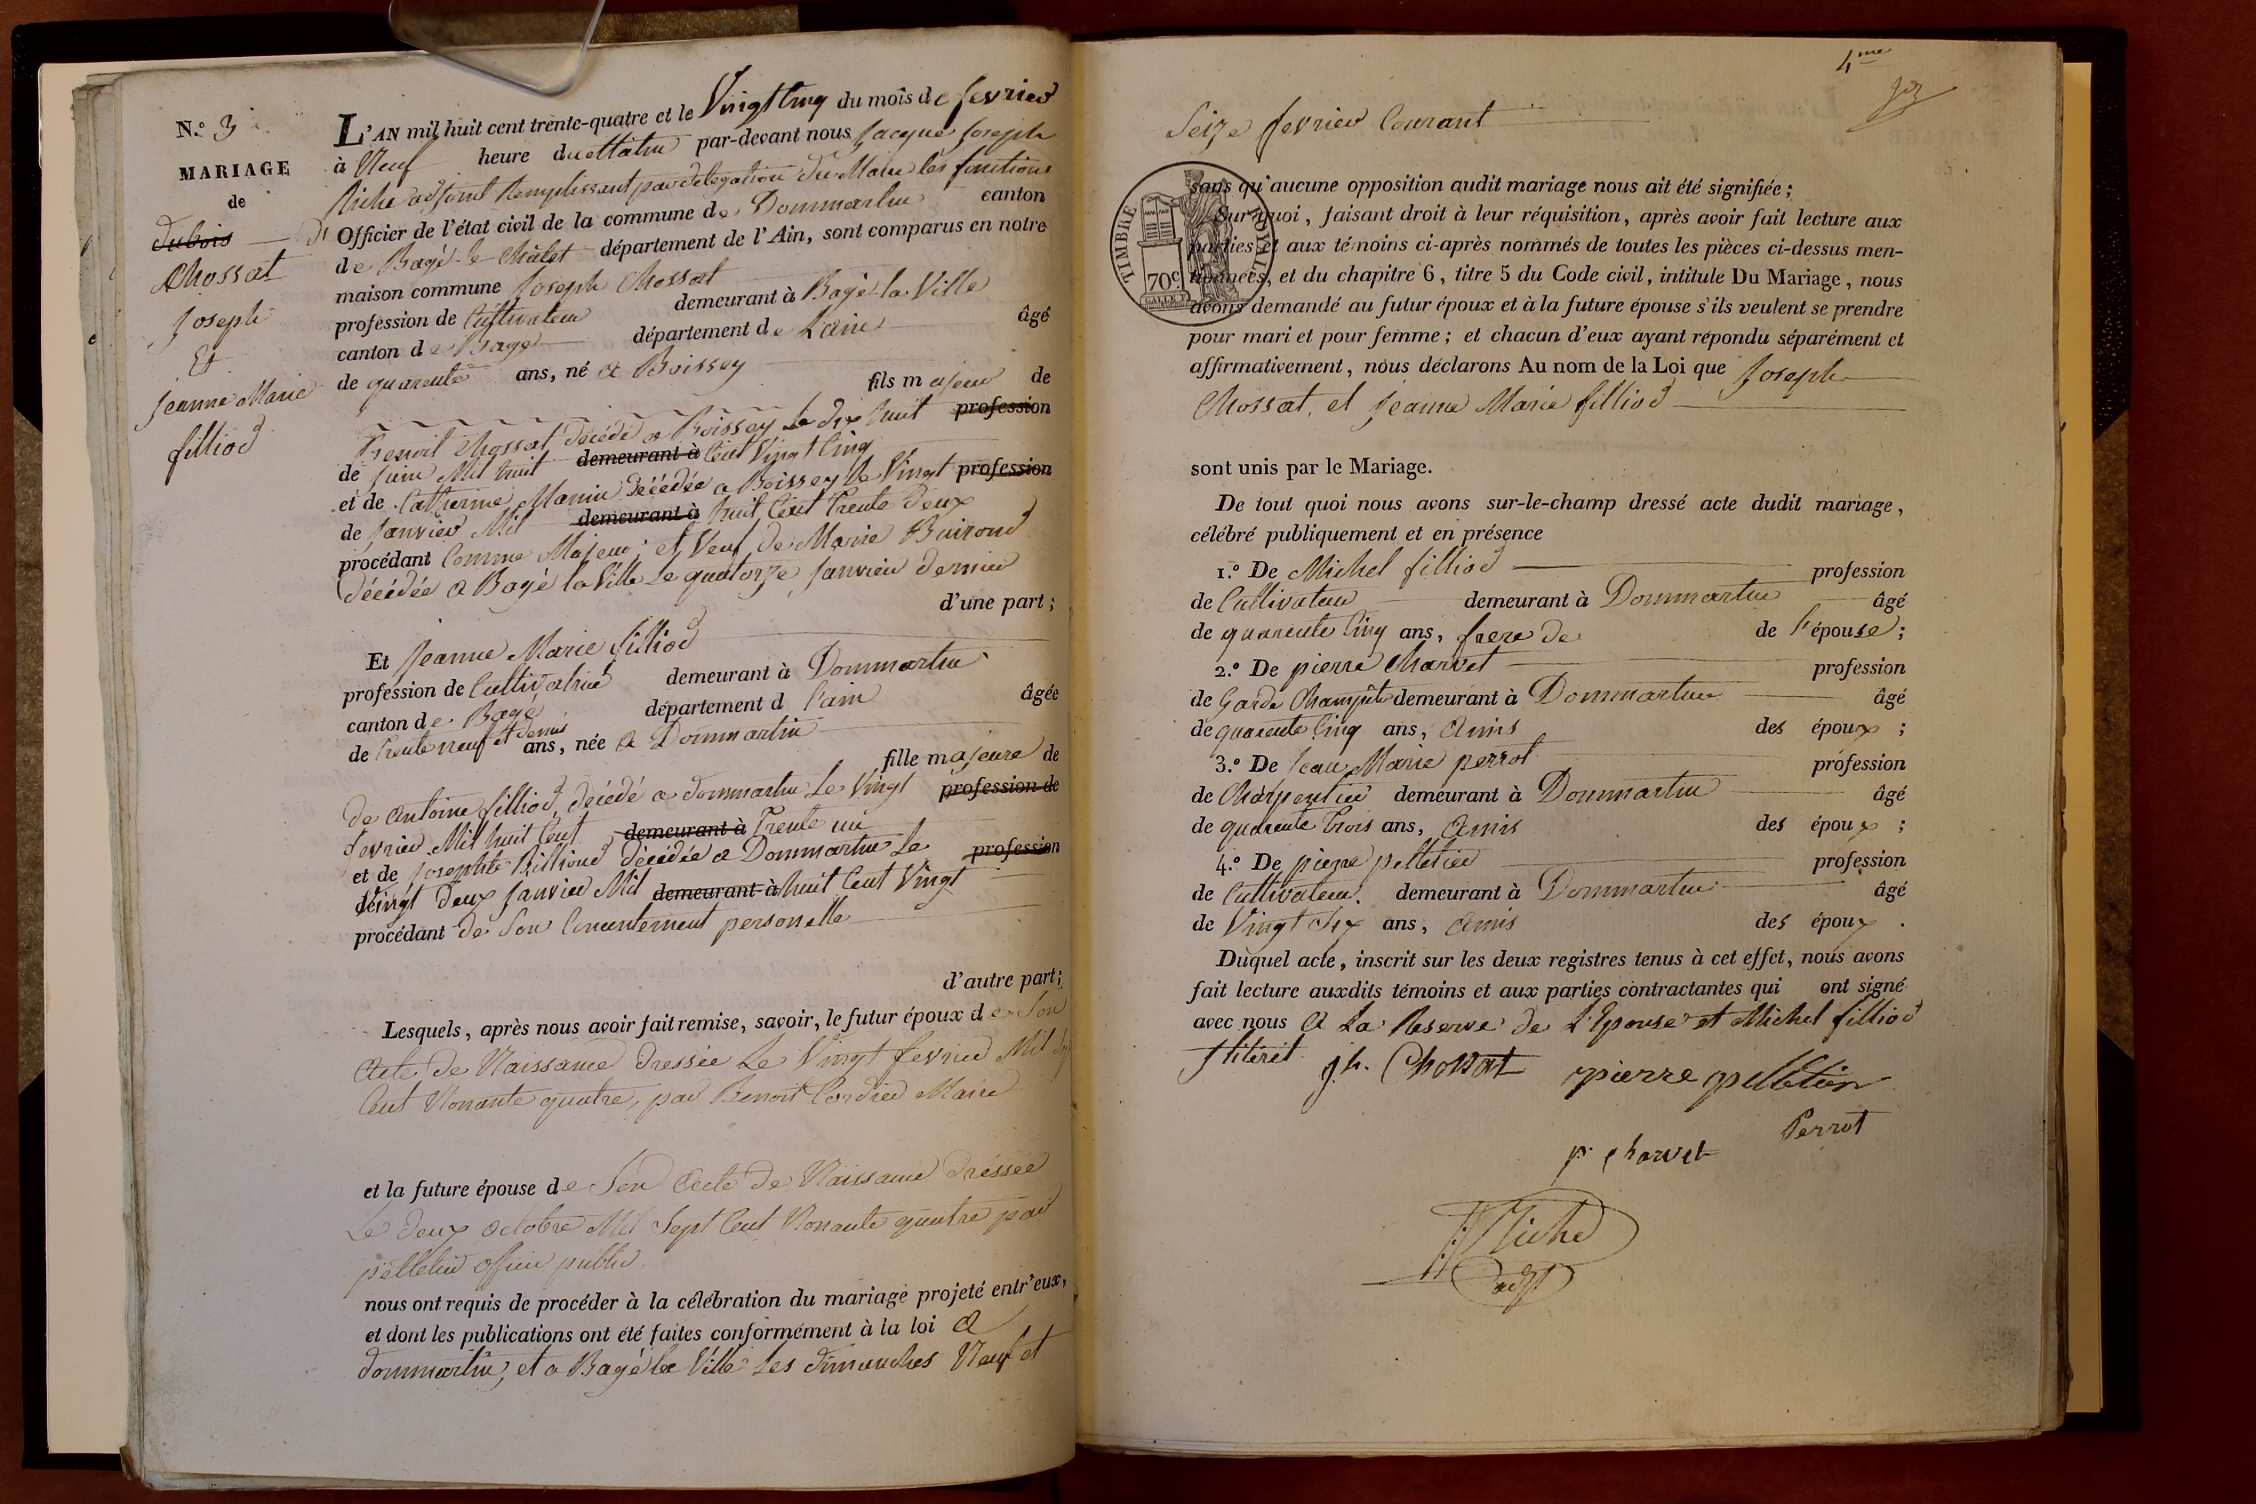 N.º 3
MARIAGE
de
dubois
Chossat
Joseph
Et
Jeanne Marie
filliod
L'AN mil huit cent trente-quatre et le Vingt Cinq du mois de fevrier
à Neuf heure du Mattin par-devant nous Jacque Joseph
Riche adjoint Remplissant par delegation du Maire les fonctions
Officier de l'état civil de la commune de Dommartin canton
de Bagé-le-Châtel département de l'Ain, sont comparus en notre
maison commune Joseph Chossat
profession de Cultivateur demeurant à Bagé-la-Ville
canton de Bagé département de L'ain âgé
de quarente ans, né a Boissey
fils majeur de
Benoit Chossat décédé a Boissey Le dix huit profession
de juin Mil huit demeurant à Cent Vingt Cinq
et de Catherine Manin décédée a Boissey le Vingt profession
de Janvier Mil demeurant à huit Cent Trente Deux
procédant Comme Majeur; et Veuf de Marie Buiron
décédée a Bagé la Ville Le quatorze janvier dernier
d'une part;
Et Jeanne Marie filliod
profession de Cultivatrice demeurant à Dommartin
canton de Bagé département d l'ain âgée
de trente neuf et demis ans, née a Dommartin
fille majeure de
de antoine filliod, décédé a dommartin Le Vingt profession de
fevrier Mil huit Cent demeurant à Trente un
et de Josephte Billioud décédée a Dommartin Le profession
Vingt Deux Janvier Mil demeurant à huit Cent Vingt
procédant de Son Concentement personelle
d'autre part;
Lesquels, après nous avoir fait remise, savoir, le futur époux de Son
Acte de Naissance dressée Le Vingt fevrier Mil Sept
Cent Nonante quatre, par Benoit Cordier Maire
et la future épouse de Son Acte de Naissance dressée
Le deux octobre Mil Sept Cent Nonante quatre par
pelletier officier public
nous ont requis de procéder à la célébration du mariage projeté entr'eux,
et dont les publications ont été faites conformément à la loi a
dommartin, et a Bagé la Ville Les dimanches Neuf et
4me
Seize fevrier Courant
TIMBRE ROYAL
70c
sans qu'aucune opposition audit mariage nous ait été signifiée;
Sur quoi, faisant droit à leur réquisition, après avoir fait lecture aux
parties et aux témoins ci-après nommés de toutes les pièces ci-dessus men-
tionnées, et du chapitre 6, titre 5 du Code civil, intitule Du Mariage, nous
avons demandé au futur époux et à la future épouse s'ils veulent se prendre
pour mari et pour femme; et chacun d'eux ayant répondu séparément et
affirmativement, nous déclarons Au nom de la Loi que Joseph
Chossat, et Jeanne Marie filliod
sont unis par le Mariage.
De tout quoi nous avons sur-le-champ dressé acte dudit mariage,
célébré publiquement et en présence
1.º De Michel filliod profession
de Cultivateur demeurant à Dommartin âgé
de quarente Cinq ans, frere de de l'épouse;
2.º De pierre Charvet profession
de Garde Champête demeurant à Dommartin âgé
de quarente Cinq ans, amis des époux;
3.º De Jean Marie perrot profession
de Charpentier demeurant à Dommartin âgé
de quarente trois ans, Amis des époux;
4.º De pierre pelletier profession
de Cultivateur. demeurant à Dommartin âgé
de Vingt Six ans, Amis des époux.
Duquel acte, inscrit sur les deux registres tenus à cet effet, nous avons
fait lecture auxdits témoins et aux parties contractantes qui ont signé
avec nous A La Reserve de L'Epouse et Michel filliod
jh. Chossat pierre pelletier
Perrot
p. charvet
Riche
adjt